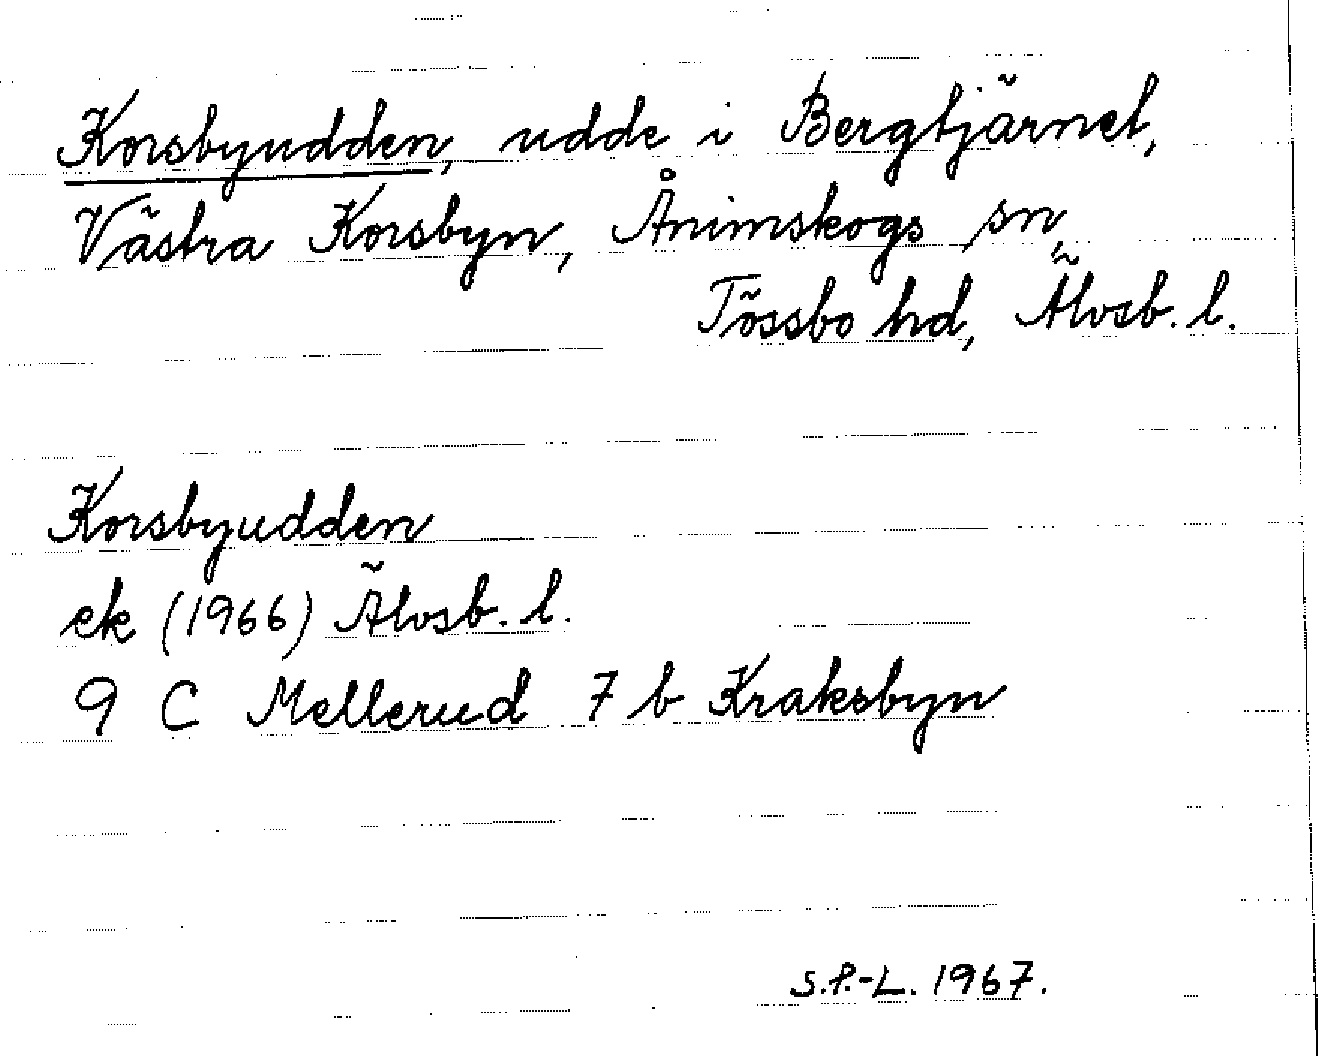 Korsbyudden, udde i Bergtjärnet,
Västra Korsbyn, Ånimskogs sn,
Tössbo hd, Älvsb. l.
Korsbyudden
ek (1966) Älvsb. l.
9 C Mellerud 7 b Kraksbyn
S.P.-L. 1967.